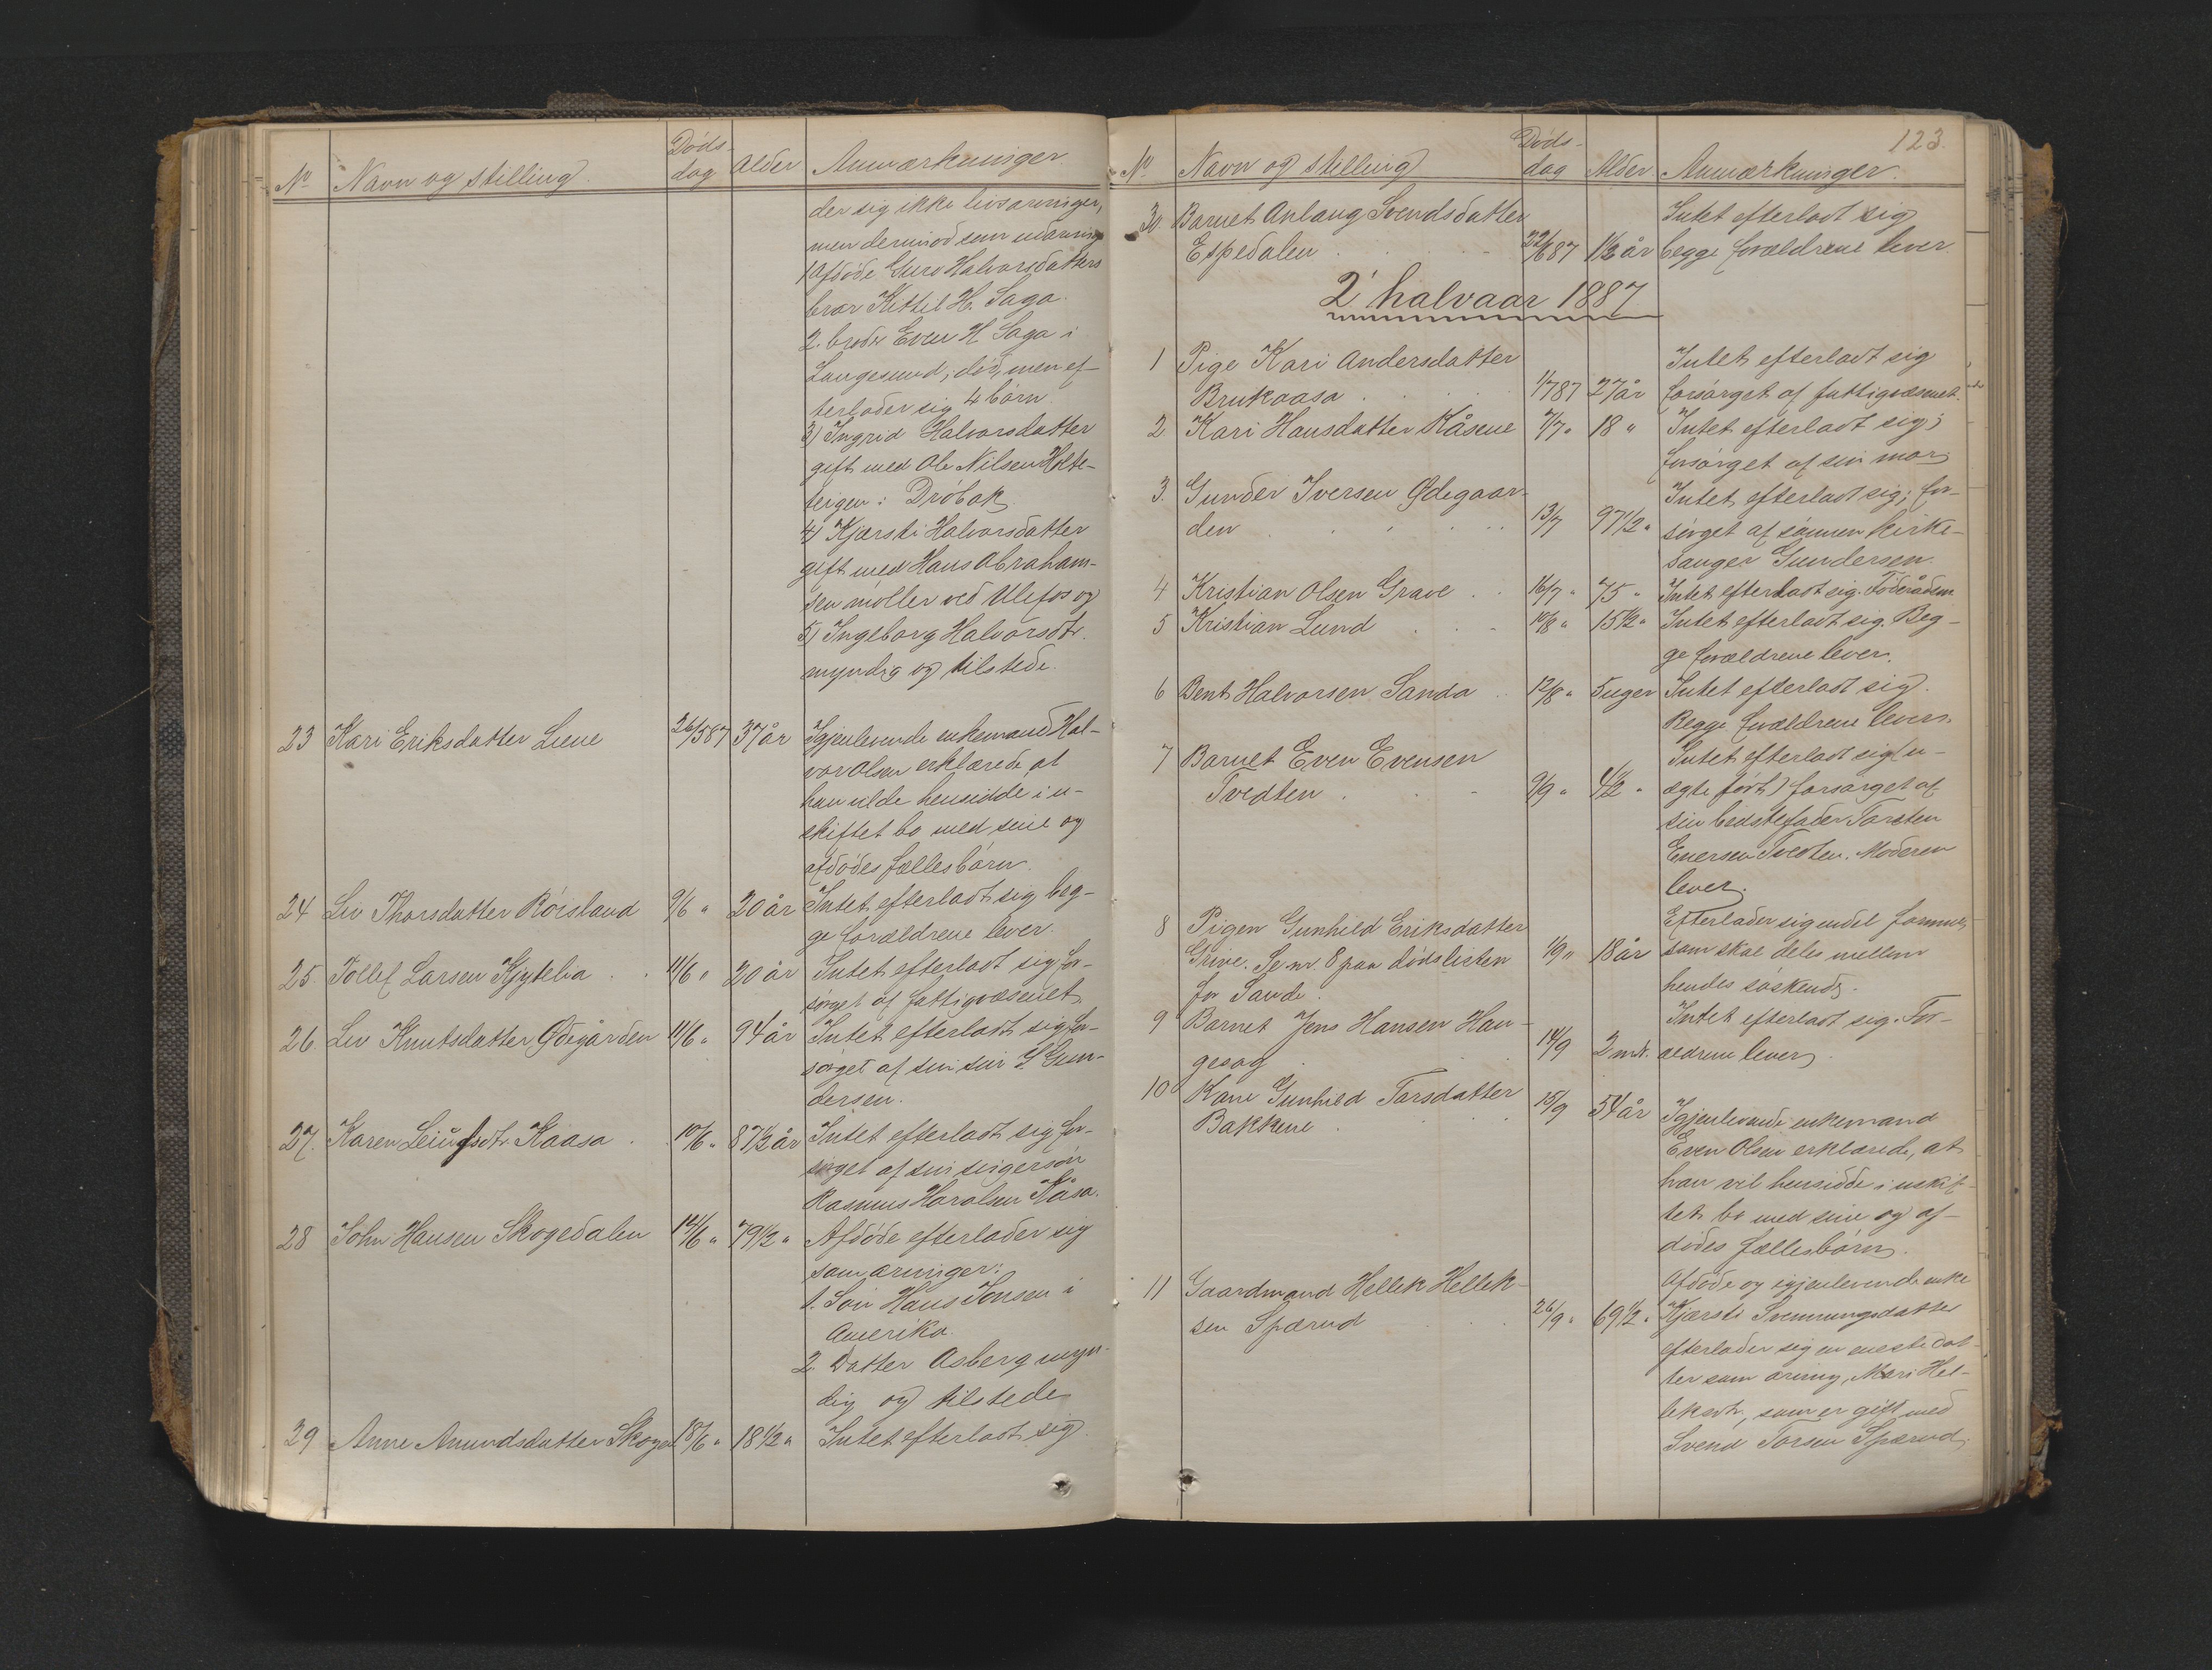 Nº Navn og stilling. Døds- dag Alder Anmærkninger
der sig ikke livsarvinger,
men derimod som udarvinger
1 Afdøde Guro Halvorsdatters
bror Kittil H. Saga.
2. broder Even H Saga i
Langesund, død, men ef-
terlader sig 4 børn.
3) Ingrid Halvorsdatter
gift med Ole Nilsen Holte-
teigen i Drøbak
4) Kjærsti Halvorsdatter
gift med Hans Abraham-
sen møller ved Ulefos og
5) Ingeborg Halvorsdtr.
myndig og tilstede.
23 Kari Eriksdatter Liene 26/5 87 37 år Igjenlevende enkemand Hal-
vor Olsen erklærede at
han vilde hensidde i u-
skiftet bo med sine og
afdødes fællesbørn.
24 Liv Thorsdatter Röisland 9/6 " 20 år Intet efterladt sig, beg-
ge forældrene lever.
25. Tollef Larsen Kjyteba . . 11/6 " 20 år Intet efterladt sig, for-
sørget af fattigvæsenet.
26. Liv Knutsdatter Ødegården 11/6 " 94 år Intet efterladt sig, for-
sørget af sin søn I. Gun-
dersen.
27. Karen Leiufsdtr. Kaasa . 10/6 " 87 1/2 år Intet efterladt sig, for-
sørget af sin svigersøn
Rasmus Haralsen Kåsa.
28 John Hansen Skogedalen 14/6 " 79 1/2 " Afdøde efterlader sig
som arvinger:
1. Søn Hans Jonsen i
Amerika.
2. Datter Asberg myn-
dig og tilstede
29 Anne Amundsdatter Skoge 18/6 " 18 1/2 " Intet efterladt sig
123.
Nº Navn og stilling Døds- dag Alder. Anmærkninger.
30. Barnet Anlaug Svendsdatter Intet efterladt sig
Espedalen . . 22/6 87 1 1/2 år begge forældrene lever.
2' halvaar 1887.
1 Pige Kari Andersdatter Intet efterladt sig
Brukaasa . . . 1/7 87 27 år forsørget af fattigvæsenet.
2 Kari Hansdatter Kåsene 7/7 " 18 " Intet efterladt sig;
forsørget af sin mor
3. Gunder Iversen Ødegaar- Intet efterladt sig; for-
den . . . . 13/7 97 1/2 " sørget af sønnen kirke-
sanger Gundersen.
4 Kristian Olsen Grave . . 16/7 " 75 " Intet efterladt sig. Föderådsm.
5 Kristian Lund . . . 10/8 " 15 1/2 " Intet efterladt sig. Beg-
ge forældrene lever.
6 Bent Halvorsen Sanda . . 12/8 " 5 uger Intet efterladt sig.
Begge forældrene lever.
7 Barnet Even Evensen Intet efterladt sig (u-
Tvedten . . . 9/9 " 4 1/2 " ægte født) forsørget af
sin bedstefader Torsten
Evensen Tvedten. Moderen
lever.
8 Pigen Gunhild Eriksdatter Efterlader sig endel formue,
Grive. Se nr. 8 paa dødslisten 1/9 " 18 år som skal deles mellem
for Saude. hendes søskende.
9 Barnet Jens Hansen Hau- Intet efterladt sig. For-
gesag . 14/9 2 md. ældrene lever.
10 Kone Gunhild Torsdatter 15/9 54 år
Bakkene . . Igjenlevende enkemand
Even Olsen erklærede, at
han vil hensidde i uskif-
tet bo med sine og af-
dødes fællesbørn.
11 Gaardmand Hellek Hellek- Afdøde og igjenlevende enke
sen Spærud . . . 26/9 " 69 1/2 " Kjærsti Svennungsdatter
efterlader sig en eneste dat-
ter som arving, Mari Hel-
leksdtr., som er gift med
Svend Torsen Spærud.